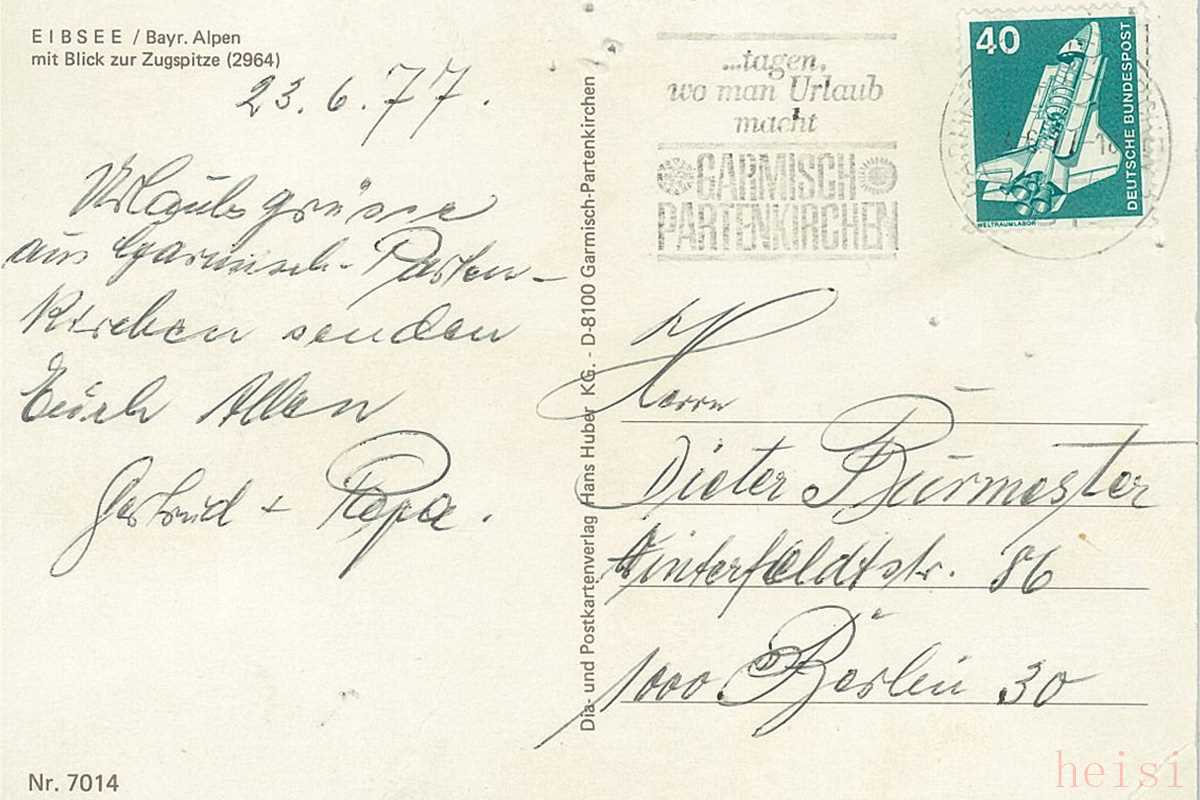 EIBSEE / Bayr. Alpen
mit Blick zur Zugspitze (2964)
23.6.77.
Urlaubsgrüsse
aus Garmisch-Parten-
kirchen senden
Euch Allen
Gertrud + Papa.
Nr. 7014
Dia- und Postkartenverlag Hans Huber KG. - D-8100 Garmisch-Partenkirchen
...tagen,
wo man Urlaub
macht
GARMISCH
PARTENKIRCHEN
40
DEUTSCHE BUNDESPOST
WELTRAUMLABOR
Herrn
Dieter Burmester
Winterfeldtstr. 86
1000 Berlin 30
heisi